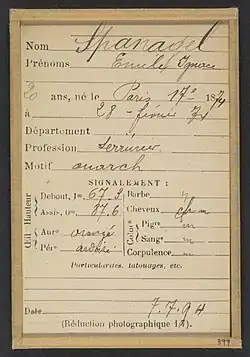 Nom Spanagel
Prénoms Emile, Ignace
20 ans, né le Paris 17e 187
à 28 - février 74
Département
Profession Serrurier
Motif anarch
SIGNALEMENT :
Œil Hauteur
Debout, 1m 67.5
Assis, 0m 87.6
Aure orangé
Pére ardoisé
Barbe
Cheveux
Color°
Pigre m
Sange m
Corpulence m
Particularités, tatouages, etc.
Date 7.7.94
(Réduction photographique 1/7).
399